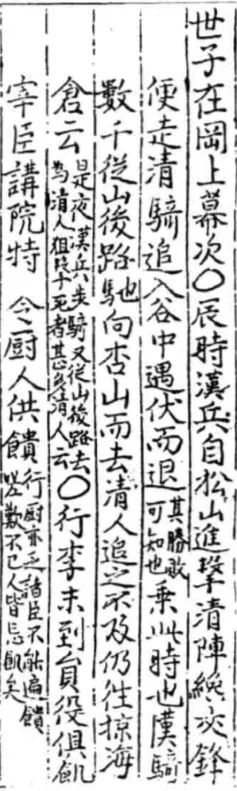 世子在岡上幕次〇辰時漢兵自松山進擊清陣纔交鋒
便走清騎追入谷中遇伏而退其勝敗可知也乘此時也漢騎
數千從山後路馳向杏山而去清人追之不及仍往掠海
倉云是夜漢兵步騎又從山後路去爲清人狙擊死者甚多清人云〇行李未到員役俱飢
宰臣講院特 令廚人供饋行廚亦乏諸臣不能遍饋嗟歎不已人皆忘飢矣